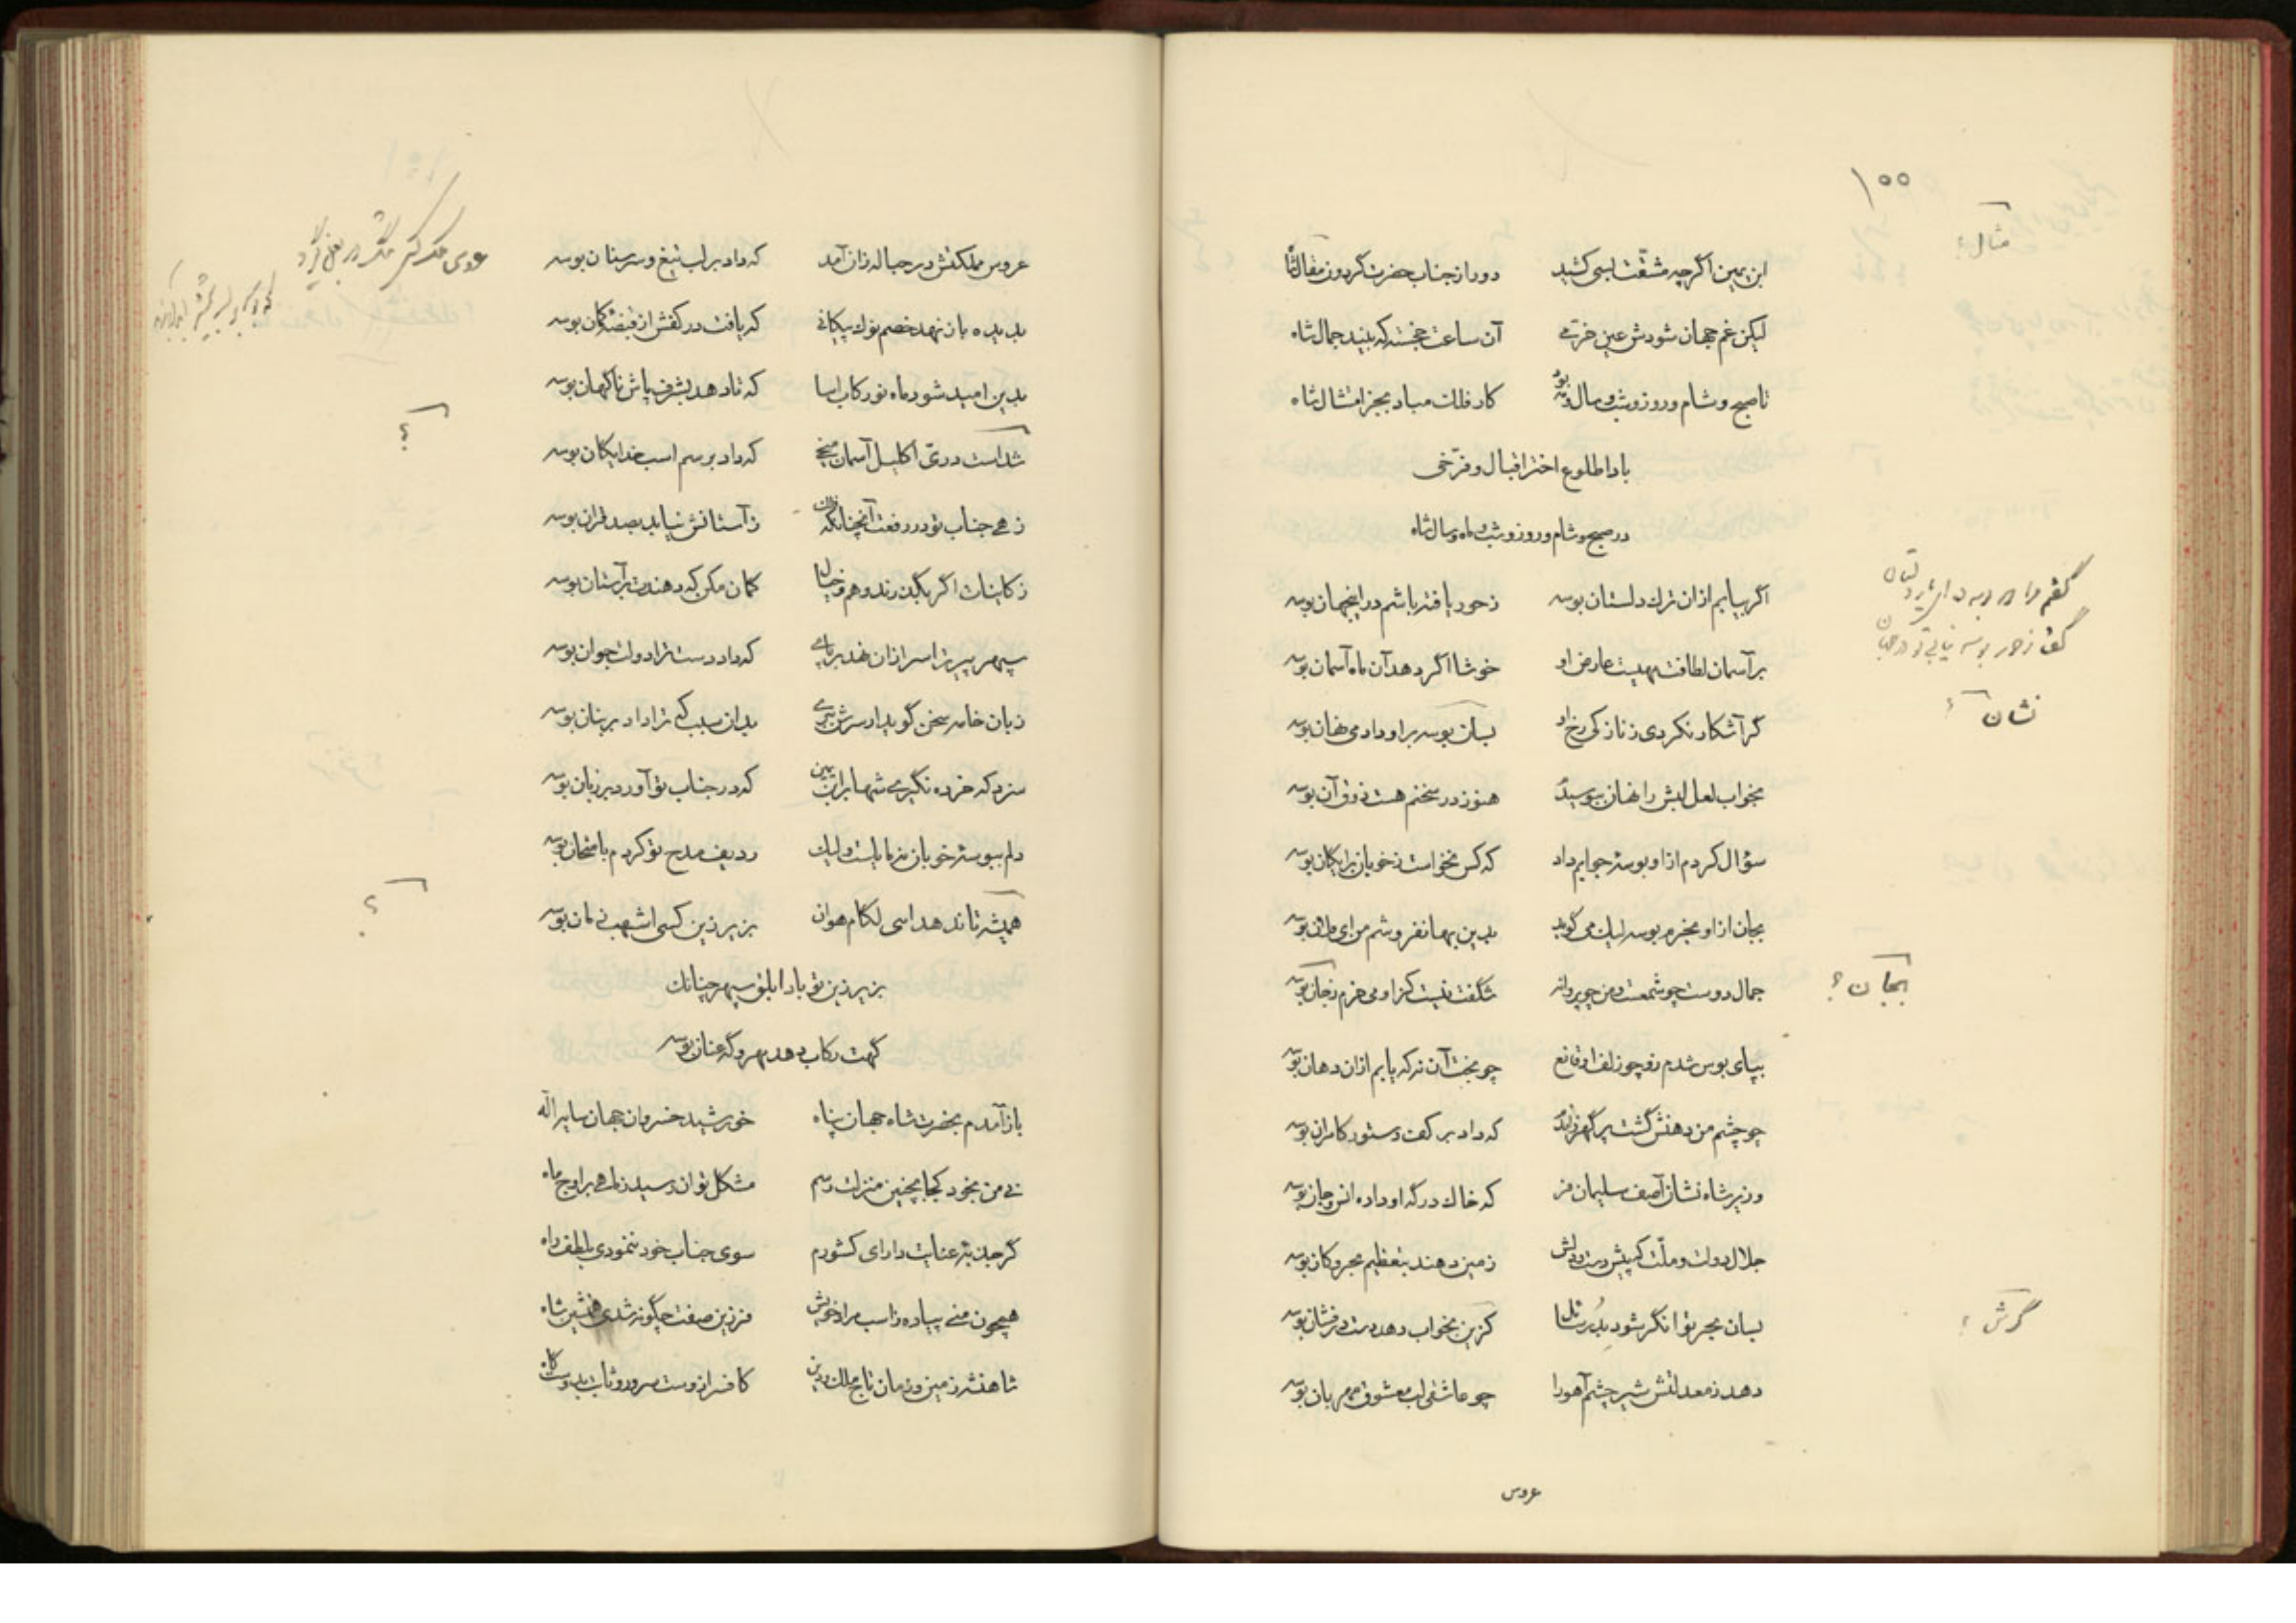 ۱۵۵
مثال؟
ابن یمین اگرچه مشقت بسی کشید دور از جناب حضرت گردون مثال شاه
لیکن غم جهان شودش عین خرمی آن ساعت خجسته که بیند جمال شاه
تا صبح و شام و روز و شب و سال و مه بود کار فلک مباد بجز امتثال شاه
بادا طلوع اختر اقبال و فرخی
در صبح و شام و روز و شب و ماه و سال شاه
اگر بیابم ازان ترک دلستان بوسه ز حور یافته باشم در اینجهان بوسه
بر آسمان لطافت مهیست عارض او خوشا اگر دهد آن ماه آسمان بوسه
نشان؟
گر آشکار نکردی ز نازکی رخ او بسان بوسه بر او دادمی نهان بوسه
بخواب لعل لبش را نهان ببوسیدم هنوز در سخنم هست ذوق آن بوسه
سؤال کردم ازو بوسهٔ جوابم داد که کس نخواست ز خوبان برایگان بوسه
بجان ازاو بخرم بوسه لیک می گوید بدین بها نفروشم من ای فلان بوسه
بجان؟
جمال دوست چو شمعست و من چو پروانه شگفت نیست کزاو می خرم بجان بوسه
بپای بوس شدم زو چو زلف او قانع چو بخت آن نه که یابم ازان دهان بوسه
چو چشم من دهنش گشت پر گهر زاندم که داد بر کف دستور کامران بوسه
وزیر شاه نشان آصف سلیمان فر که خاک درگه او داده انس و جان بوسه
جلال دولت و ملت که پیش دست و دلش زمین دهند بتعظیم بحر و کان بوسه
گرش؟
بسان بحر توانگر شود بدر سائل گزین بخواب دهد دست درفشان بوسه
دهد ز معدلتش شیر چشم آهو را چو عاشقی لب معشوق مهربان بوسه
عروس
عروس مملکتش در حباله زان آمد که داد بر لب تیغ و سر سنان بوسه
بدیده باز نهد خصم نوک پیکانی که یافت در کفش از قبضهٔ کمان بوسه
بدین امید شود ماه نو رکاب آسا که تا دهد بشرف پاش ناگهان بوسه
؟
شداست درّی اکلیل آسمان منجی که داد بر سم اسب خدایگان بوسه
زهی جناب تو در رفعت آنچنانکه قران ز آستانش نیابد بصد قران بوسه
ز کاینات اگر بگذرند وهم و خیال گمان مکن که دهندت بر آستان بوسه
سپهر پیر ترا سر ازان نهد بر پای که داد دست ترا دولت جوان بوسه
زبان خامه سخن گوید از سرش ببری بدان سبب که ترا داد بر بنان بوسه
سزد که خرده نگیری شها بر ابن یمین که در جناب تو آورد بر زبان بوسه
دلم ببوسهٔ خوبان نه مایلست ولیک ردیف مدح تو کردم بامتحان بوسه
؟
همیشه تا ندهد اسی لگام هوان بزیر زین کسی اشهب زمان بوسه
بزیر زین تو باد ابلق سپهر چنانک
گهت رکاب دهد بهر و گه عنان بوسه
باز آمدم بحضرت شاه جهان پناه خورشید خسروان جهان سایه اله
نی من بخود کجا بچنین منزلت رسم مشکل توان رسید ز ماهی بر اوج ماه
گر جذبهٔ عنایت دارای کشورم سوی جناب خود ننمودی بلطف راه
همچون منی پیاده ز اسب مراد خویش فرزین صفت چگونه شدی همنشین شاه
شاهنشه زمین و زمان تاج ملک و دین